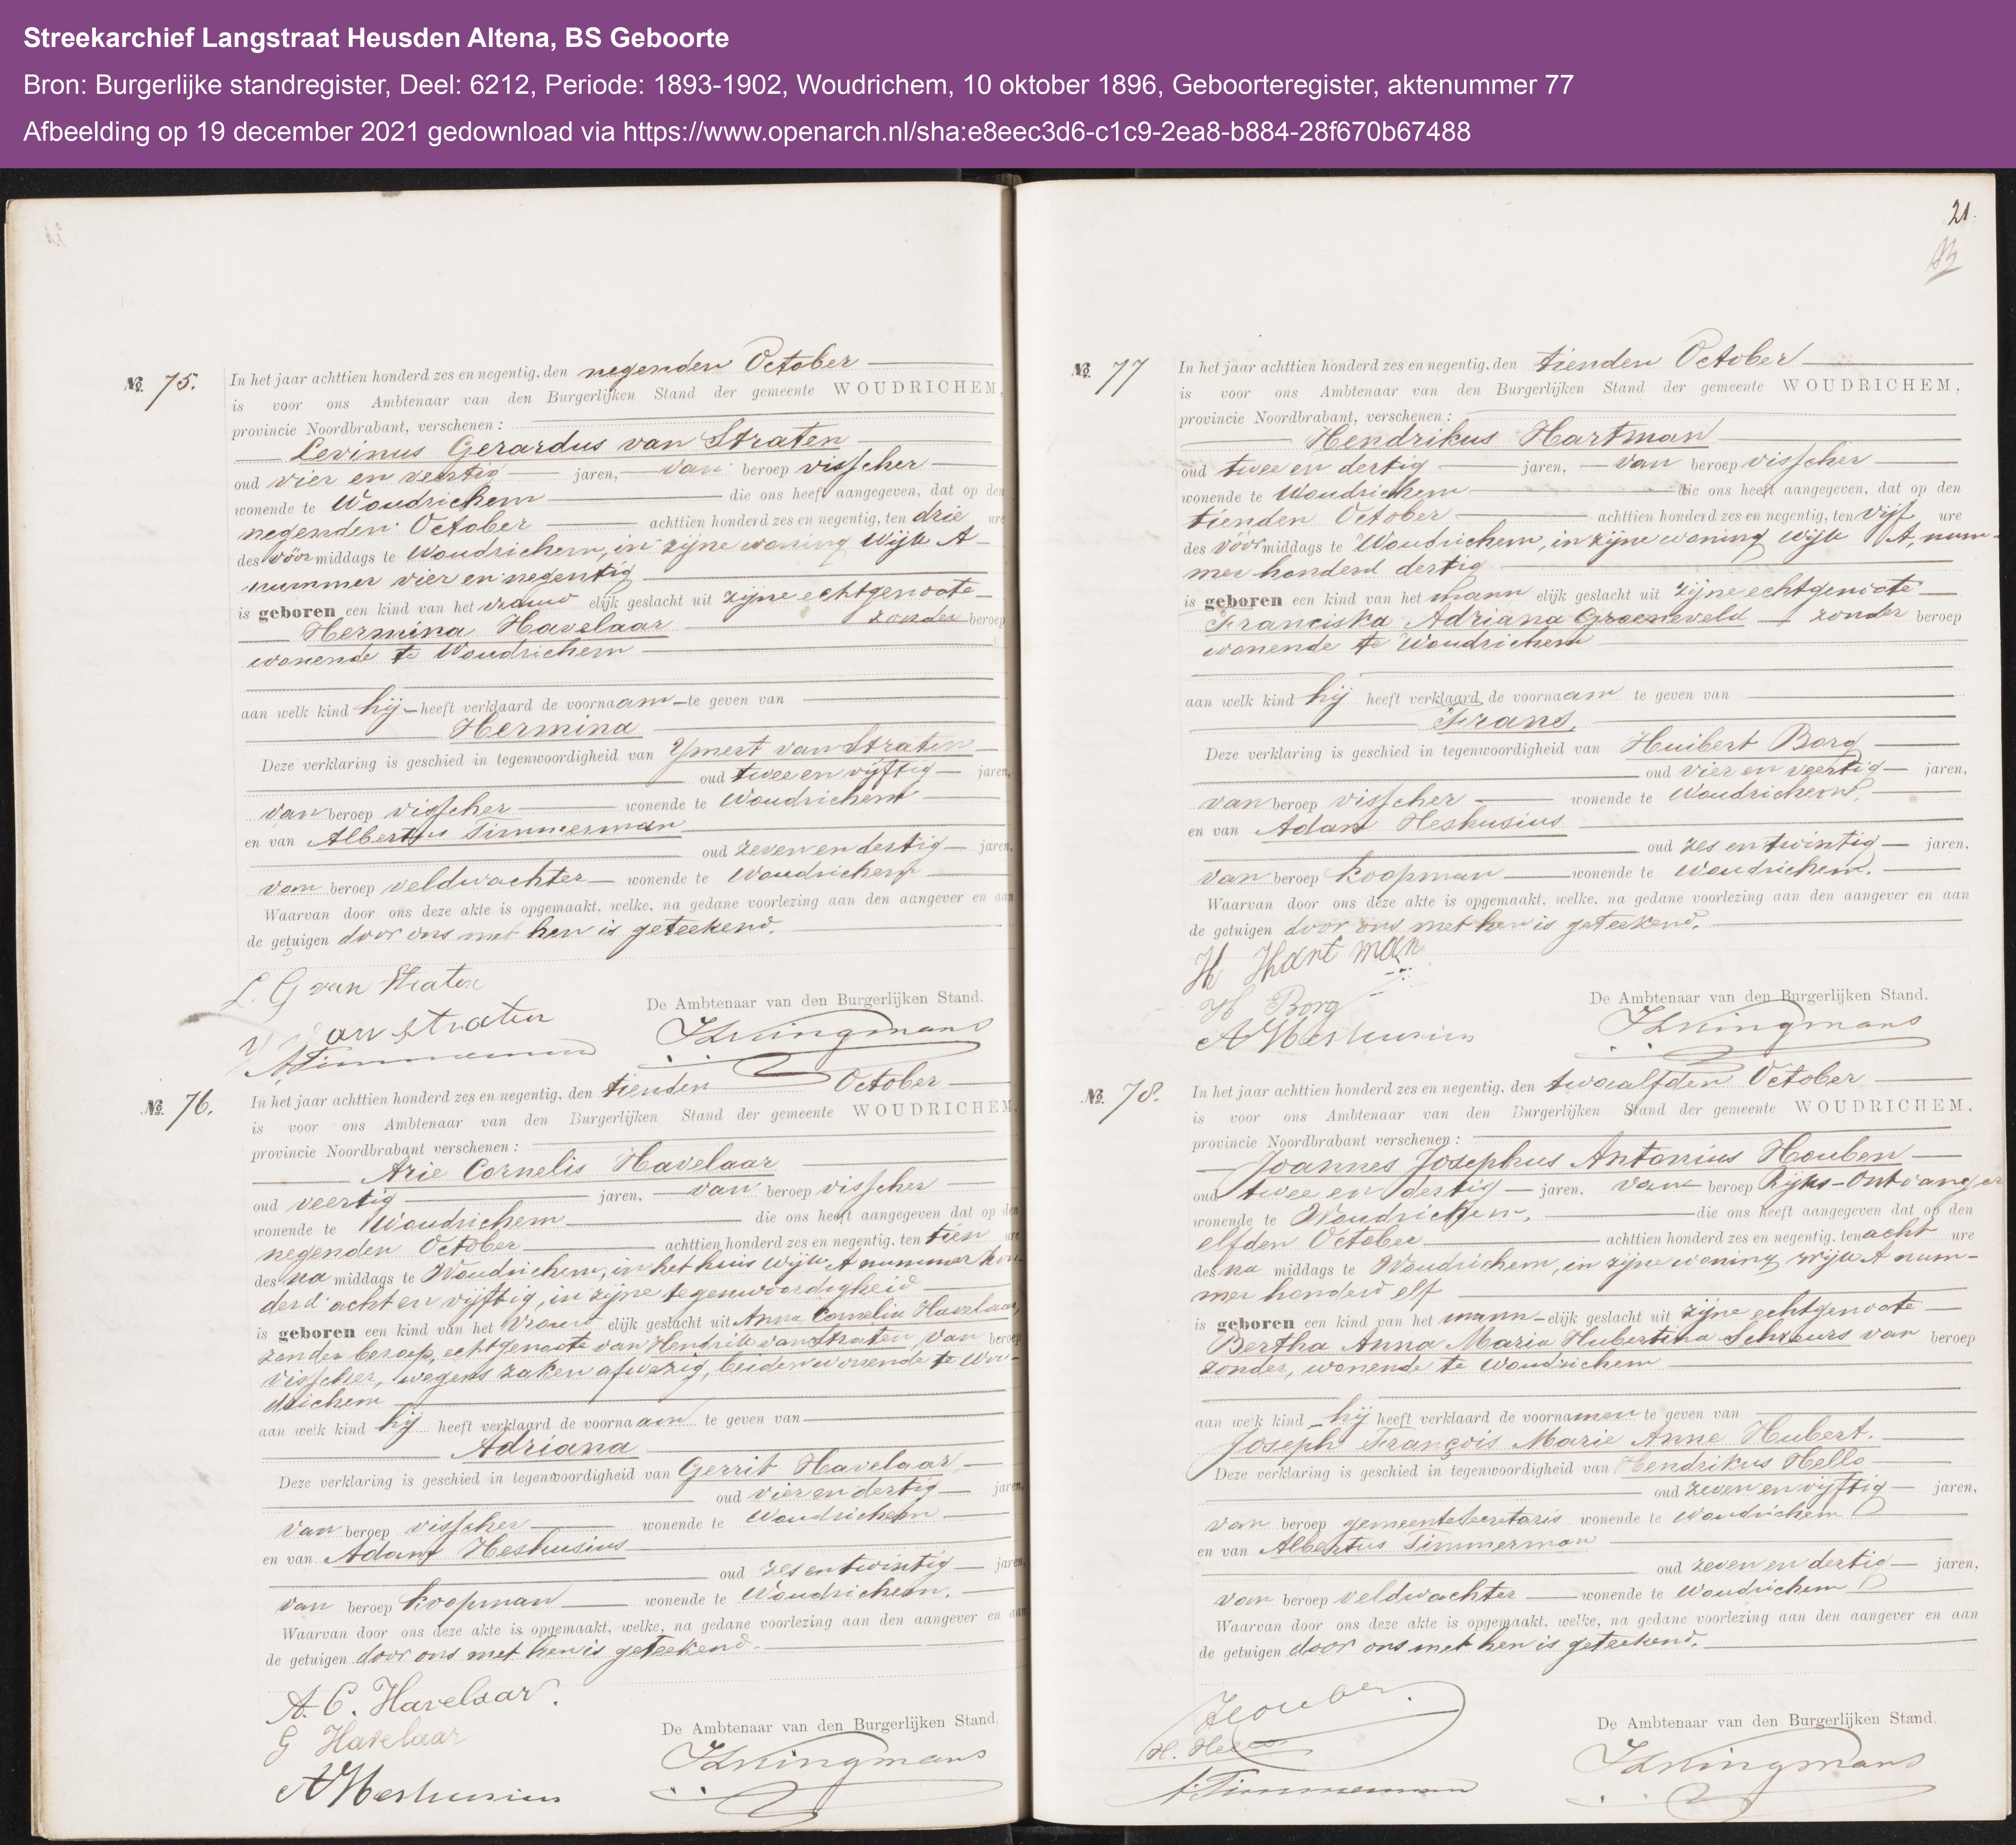 Streekarchief Langstraat Heusden Altena, BS Geboorte
Bron: Burgerlijke standregister, Deel: 6212, Periode: 1893-1902, Woudrichem, 10 oktober 1896, Geboorteregister, aktenummer 77
Afbeelding op 19 december 2021 gedownload via https://www.openarch.nl/sha:e8eec3d6-c1c9-2ea8-b884-28f670b67488
No. 75. In het jaar achttien honderd zes en negentig, den negenden October
is voor ons Ambtenaar van den Burgerlijken Stand der gemeente WOUDRICHEM,
provincie Noordbrabant, verschenen:
Levinus Gerardus van Straten
oud vier en veertig jaren, van beroep visscher
wonende te Woudrichem die ons heeft aangegeven, dat op den
negenden October achttien honderd zes en negentig, ten drie ure
des vóór middags te Woudrichem, in zijne woning Wijk A
nummer vier en negentig
is geboren een kind van het vrouw elijk geslacht uit zijne echtgenoote
Hermina Havelaar zonder beroep
wonende te Woudrichem
aan welk kind hij heeft verklaard de voornaam te geven van
Hermina
Deze verklaring is geschied in tegenwoordigheid van Ymert van Straten
oud twee en vijftig jaren,
van beroep visscher wonende te Woudrichem
en van Albertus Timmerman
oud zeven en dertig jaren,
van beroep veldwachter wonende te Woudrichem
Waarvan door ons deze akte is opgemaakt, welke, na gedane voorlezing aan den aangever en aan
de getuigen door ons met hen is geteekend.
L. G van Straten
Y van Straten
De Ambtenaar van den Burgerlijken Stand.
A Timmerman
No. 76. In het jaar achttien honderd zes en negentig, den tienden October
is voor ons Ambtenaar van den Burgerlijken Stand der gemeente WOUDRICHEM,
provincie Noordbrabant verschenen:
Arie Cornelis Havelaar
oud veertig jaren, van beroep visscher
wonende te Woudrichem die ons heeft aangegeven dat op den
negenden October achttien honderd zes en negentig, ten tien ure
des na middags te Woudrichem, in het huis Wijk A nummer hon-
derd acht en vijftig, in zijne tegenwoordigheid
is geboren een kind van het vrouw elijk geslacht uit Anna Cornelia Havelaar,
zonder beroep, echtgenoote van Hendrik van Straten, van beroep
visscher, wegens zaken afwezig, beiden wonende te Wou-
drichem
aan welk kind hij heeft verklaard de voornaam te geven van
Adriana
Deze verklaring is geschied in tegenwoordigheid van Gerrit Havelaar,
oud vier en dertig jaren,
van beroep visscher wonende te Woudrichem
en van Adam Heshusius
oud zes en twintig jaren,
van beroep koopman wonende te Woudrichem.
Waarvan door ons deze akte is opgemaakt, welke, na gedane voorlezing aan den aangever en aan
de getuigen door ons met hen is geteekend.
A. C. Havelaar.
G Havelaar
De Ambtenaar van den Burgerlijken Stand.
A Heshusius
21.
No. 77 In het jaar achttien honderd zes en negentig, den tienden October
is voor ons Ambtenaar van den Burgerlijken Stand der gemeente WOUDRICHEM,
provincie Noordbrabant, verschenen:
Hendrikus Hartman
oud twee en dertig jaren, van beroep visscher
wonende te Woudrichem die ons heeft aangegeven, dat op den
tienden October achttien honderd zes en negentig, ten vijf ure
des vóór middags te Woudrichem, in zijne woning wijk A, num-
mer honderd dertig
is geboren een kind van het mann elijk geslacht uit zijne echtgenoote
Franciska Adriana Groeneveld zonder beroep
wonende te Woudrichem
aan welk kind hij heeft verklaard de voornaam te geven van
Frans,
Deze verklaring is geschied in tegenwoordigheid van Huibert Borg
oud vier en veertig jaren,
van beroep visscher wonende te Woudrichem,
en van Adam Heshusius
oud zes en twintig jaren,
van beroep koopman wonende te Woudrichem.
Waarvan door ons deze akte is opgemaakt, welke, na gedane voorlezing aan den aangever en aan
de getuigen door ons met hen is geteekend.
H Hartman
H Borg
De Ambtenaar van den Burgerlijken Stand.
A Heshusius
No. 78. In het jaar achttien honderd zes en negentig, den twaalfden October
is voor ons Ambtenaar van den Burgerlijken Stand der gemeente WOUDRICHEM,
provincie Noordbrabant verschenen:
Joannes Josephus Antonius Houben
oud twee en dertig jaren, van beroep Rijks-Ontvanger
wonende te Woudrichem, die ons heeft aangegeven dat op den
elfden October achttien honderd zes en negentig, ten acht ure
des na middags te Woudrichem, in zijne woning wijk A num-
mer honderd elf
is geboren een kind van het mann-elijk geslacht uit zijne echtgenoote
Bertha Anna Maria Hubertina Schreurs van beroep
zonder, wonende te Woudrichem
aan welk kind hij heeft verklaard de voornamen te geven van
Joseph François Marie Anne Hubert.
Deze verklaring is geschied in tegenwoordigheid van Hendrikus Hello
oud zeven en vijftig jaren,
van beroep gemeentesecretaris wonende te Woudrichem
en van Albertus Timmerman
oud zeven en dertig jaren,
van beroep veldwachter wonende te Woudrichem
Waarvan door ons deze akte is opgemaakt, welke, na gedane voorlezing aan den aangever en aan
de getuigen door ons met hen is geteekend.
Houben.
H. Hello
De Ambtenaar van den Burgerlijken Stand.
A. Timmerman